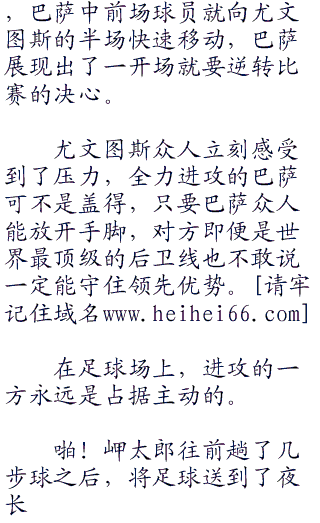 ，巴萨中前场球员就向尤文
图斯的半场快速移动，巴萨
展现出了一开场就要逆转比
赛的决心。
尤文图斯众人立刻感受
到了压力，全力进攻的巴萨
可不是盖得，只要巴萨众人
能放开手脚，对方即便是世
界最顶级的后卫线也不敢说
一定能守住领先优势。[请牢
记住域名www.heihei66.com]
在足球场上，进攻的一
方永远是占据主动的。
啪！岬太郎往前趟了几
步球之后，将足球送到了夜
长